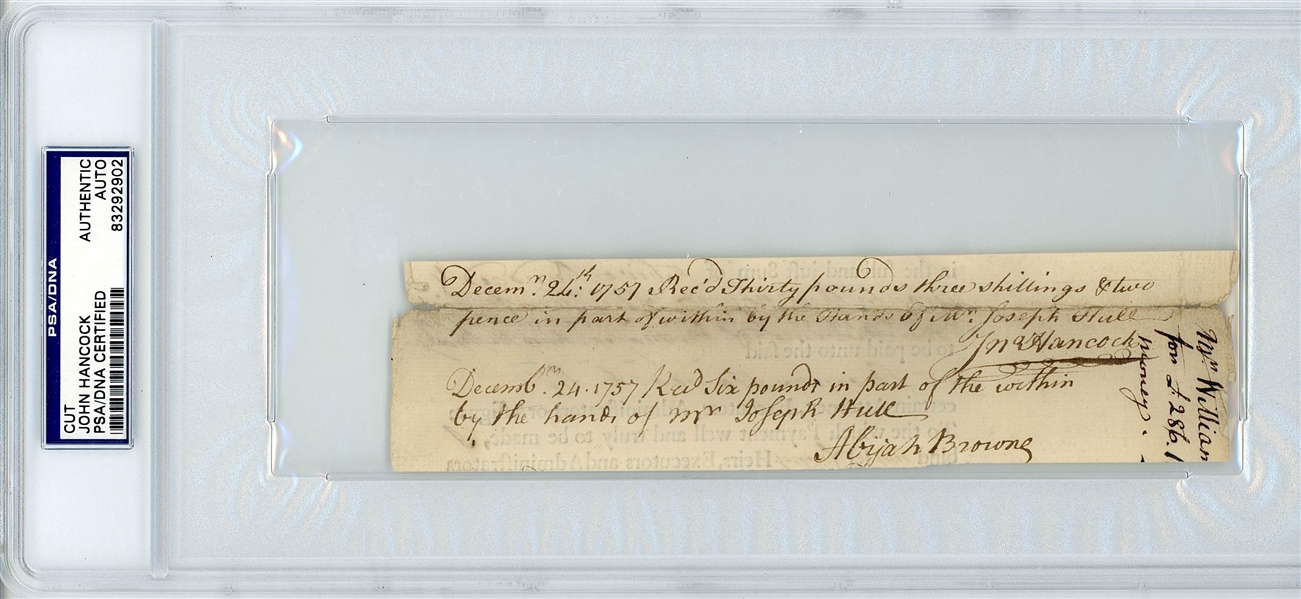 PSA/DNA
CUT
JOHN HANCOCK
PSA/DNA CERTIFIED
AUTHENTIC
AUTO
83292902
Decemr. 24th. 1757 Rec'd Thirty pounds three shillings & two
pence in part of within by the Hands of Mr. Joseph Hull
Jno Hancock
Decembr 24. 1757 Recd Six pounds in part of the within
by the hands of Mr Joseph Hull
Abijah Browne
Mr. William
for £286.1
money.
in the full and just Sum of
to be paid unto the said
To the which Payment well and truly to be made,
Heirs, Executors and Administrators